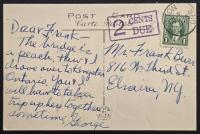 POST CARD
Carte Postale
2 CENTS
DUE
Dear Frank—
The bridge is
a peach. Here I
drove over to
Ontario. You &
will have to take a
trip up here together
sometime. George
Mr. Frank Buss
816 W. Third St.
Elmira NY.